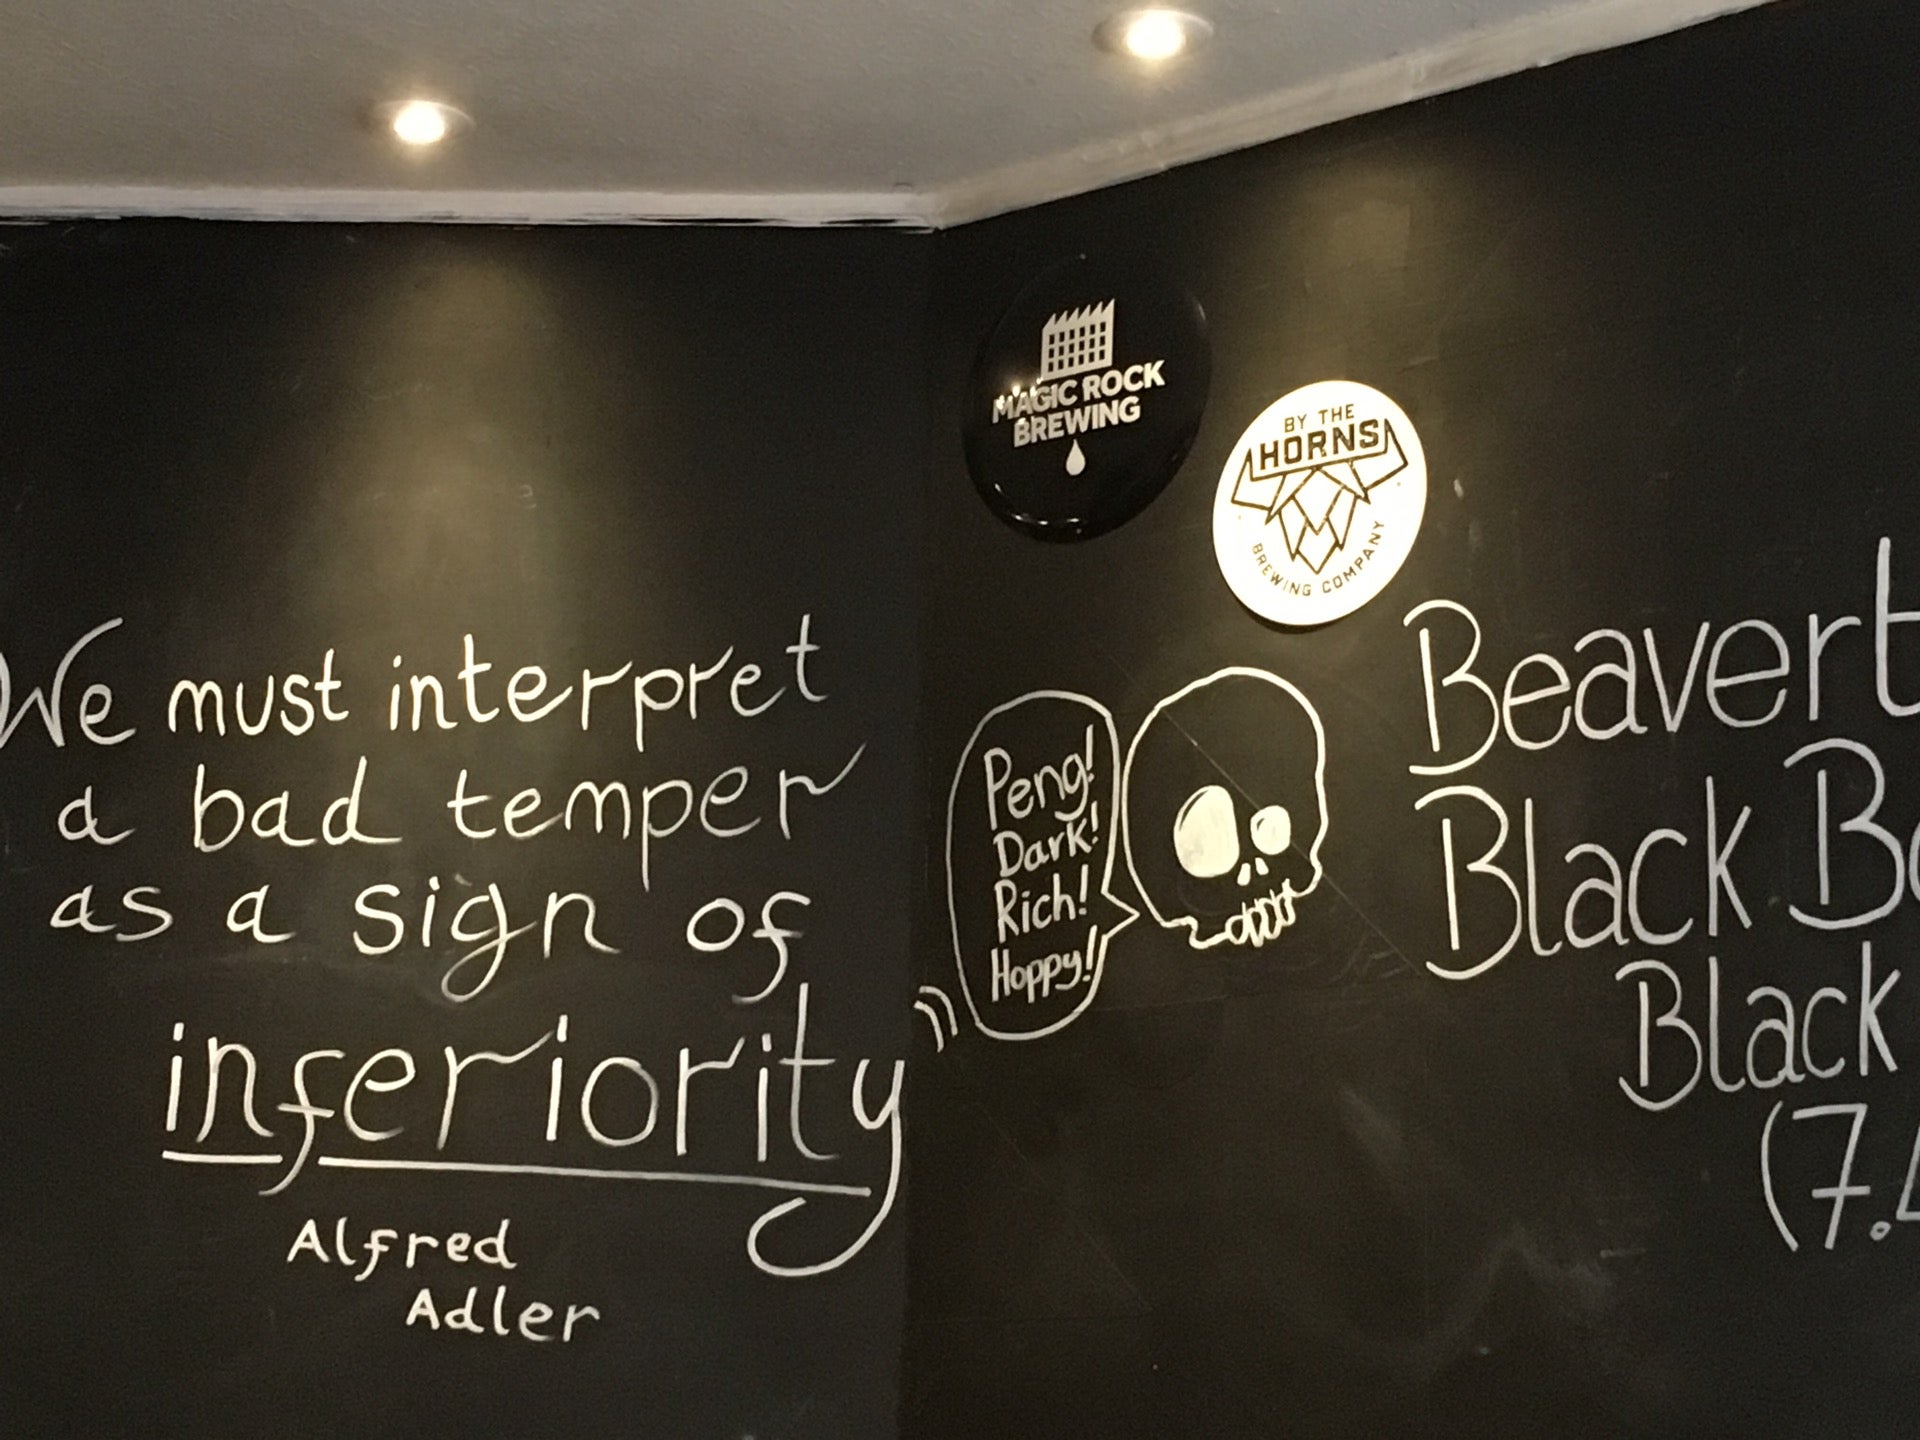 We must interpret
a bad temper
as a sign of
inferiority
Alfred
Adler
MAGIC ROCK
BREWING
BY THE
HORNS
BREWING COMPANY
Peng!
Dark!
Rich!
Hoppy!
Beavert
Black B
Black
(7.